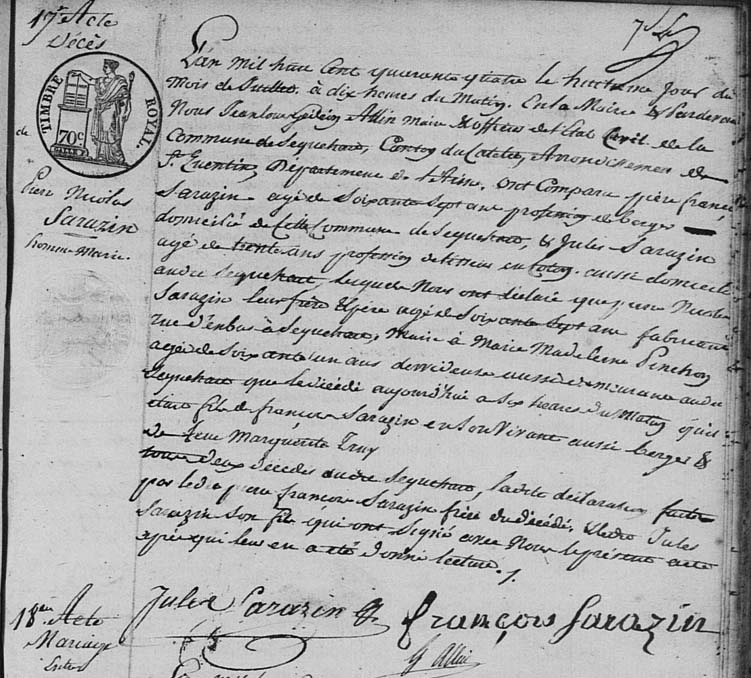 17e Acte
Décès
TIMBRE ROYAL.
70c
de
Pierre Nicolas
Sarazin
homme Marié.
L'an mil huit Cent quarante quatre le huitieme jour du
mois de Juillet. à dix heures du Matin. En la Mairie & Pardevant
Nous Jean louis Allin Maire & officier de l'Etat Civil de la
Commune de Sequehart, Canton du Catelet, Arrondissement de
St Quentin, Département de l'Aisne, ont Comparu pierre françois
Sarazin agé de Soixante Sept ans profession de berger
domicilié de Cette Commune de Sequehart, & Jules Sarazin
agé de trente ans profession de tisseur en Coton. aussi domicilié
audit Sequehart, lesquels Nous ont déclaré que pierre Nicolas
Sarazin leur frère & père agé de Soixante Sept ans fabricant
rue d'enbas à Sequehart, Marié à Marie Madeleine Pinchon
agé de Soixante un ans dévideuse aussi demeurante audit
Sequehart que le décédé aujourd'hui a Six heures du Matin qu'il
était fils de françois Sarazin en Son Vivant aussi berger &
de feue Marguerite Truy
tous deux décédés audit Sequehart, ladite déclaration faite
par ledit pierre françois Sarazin frère du décédé, & ledit Jules
Sarazin Son fils qui ont Signé avec Nous le présent acte
après qui leur en a été donné lecture.
Jules Sarazin
françois Sarazin
Allin
18em Acte
Mariage
Entre